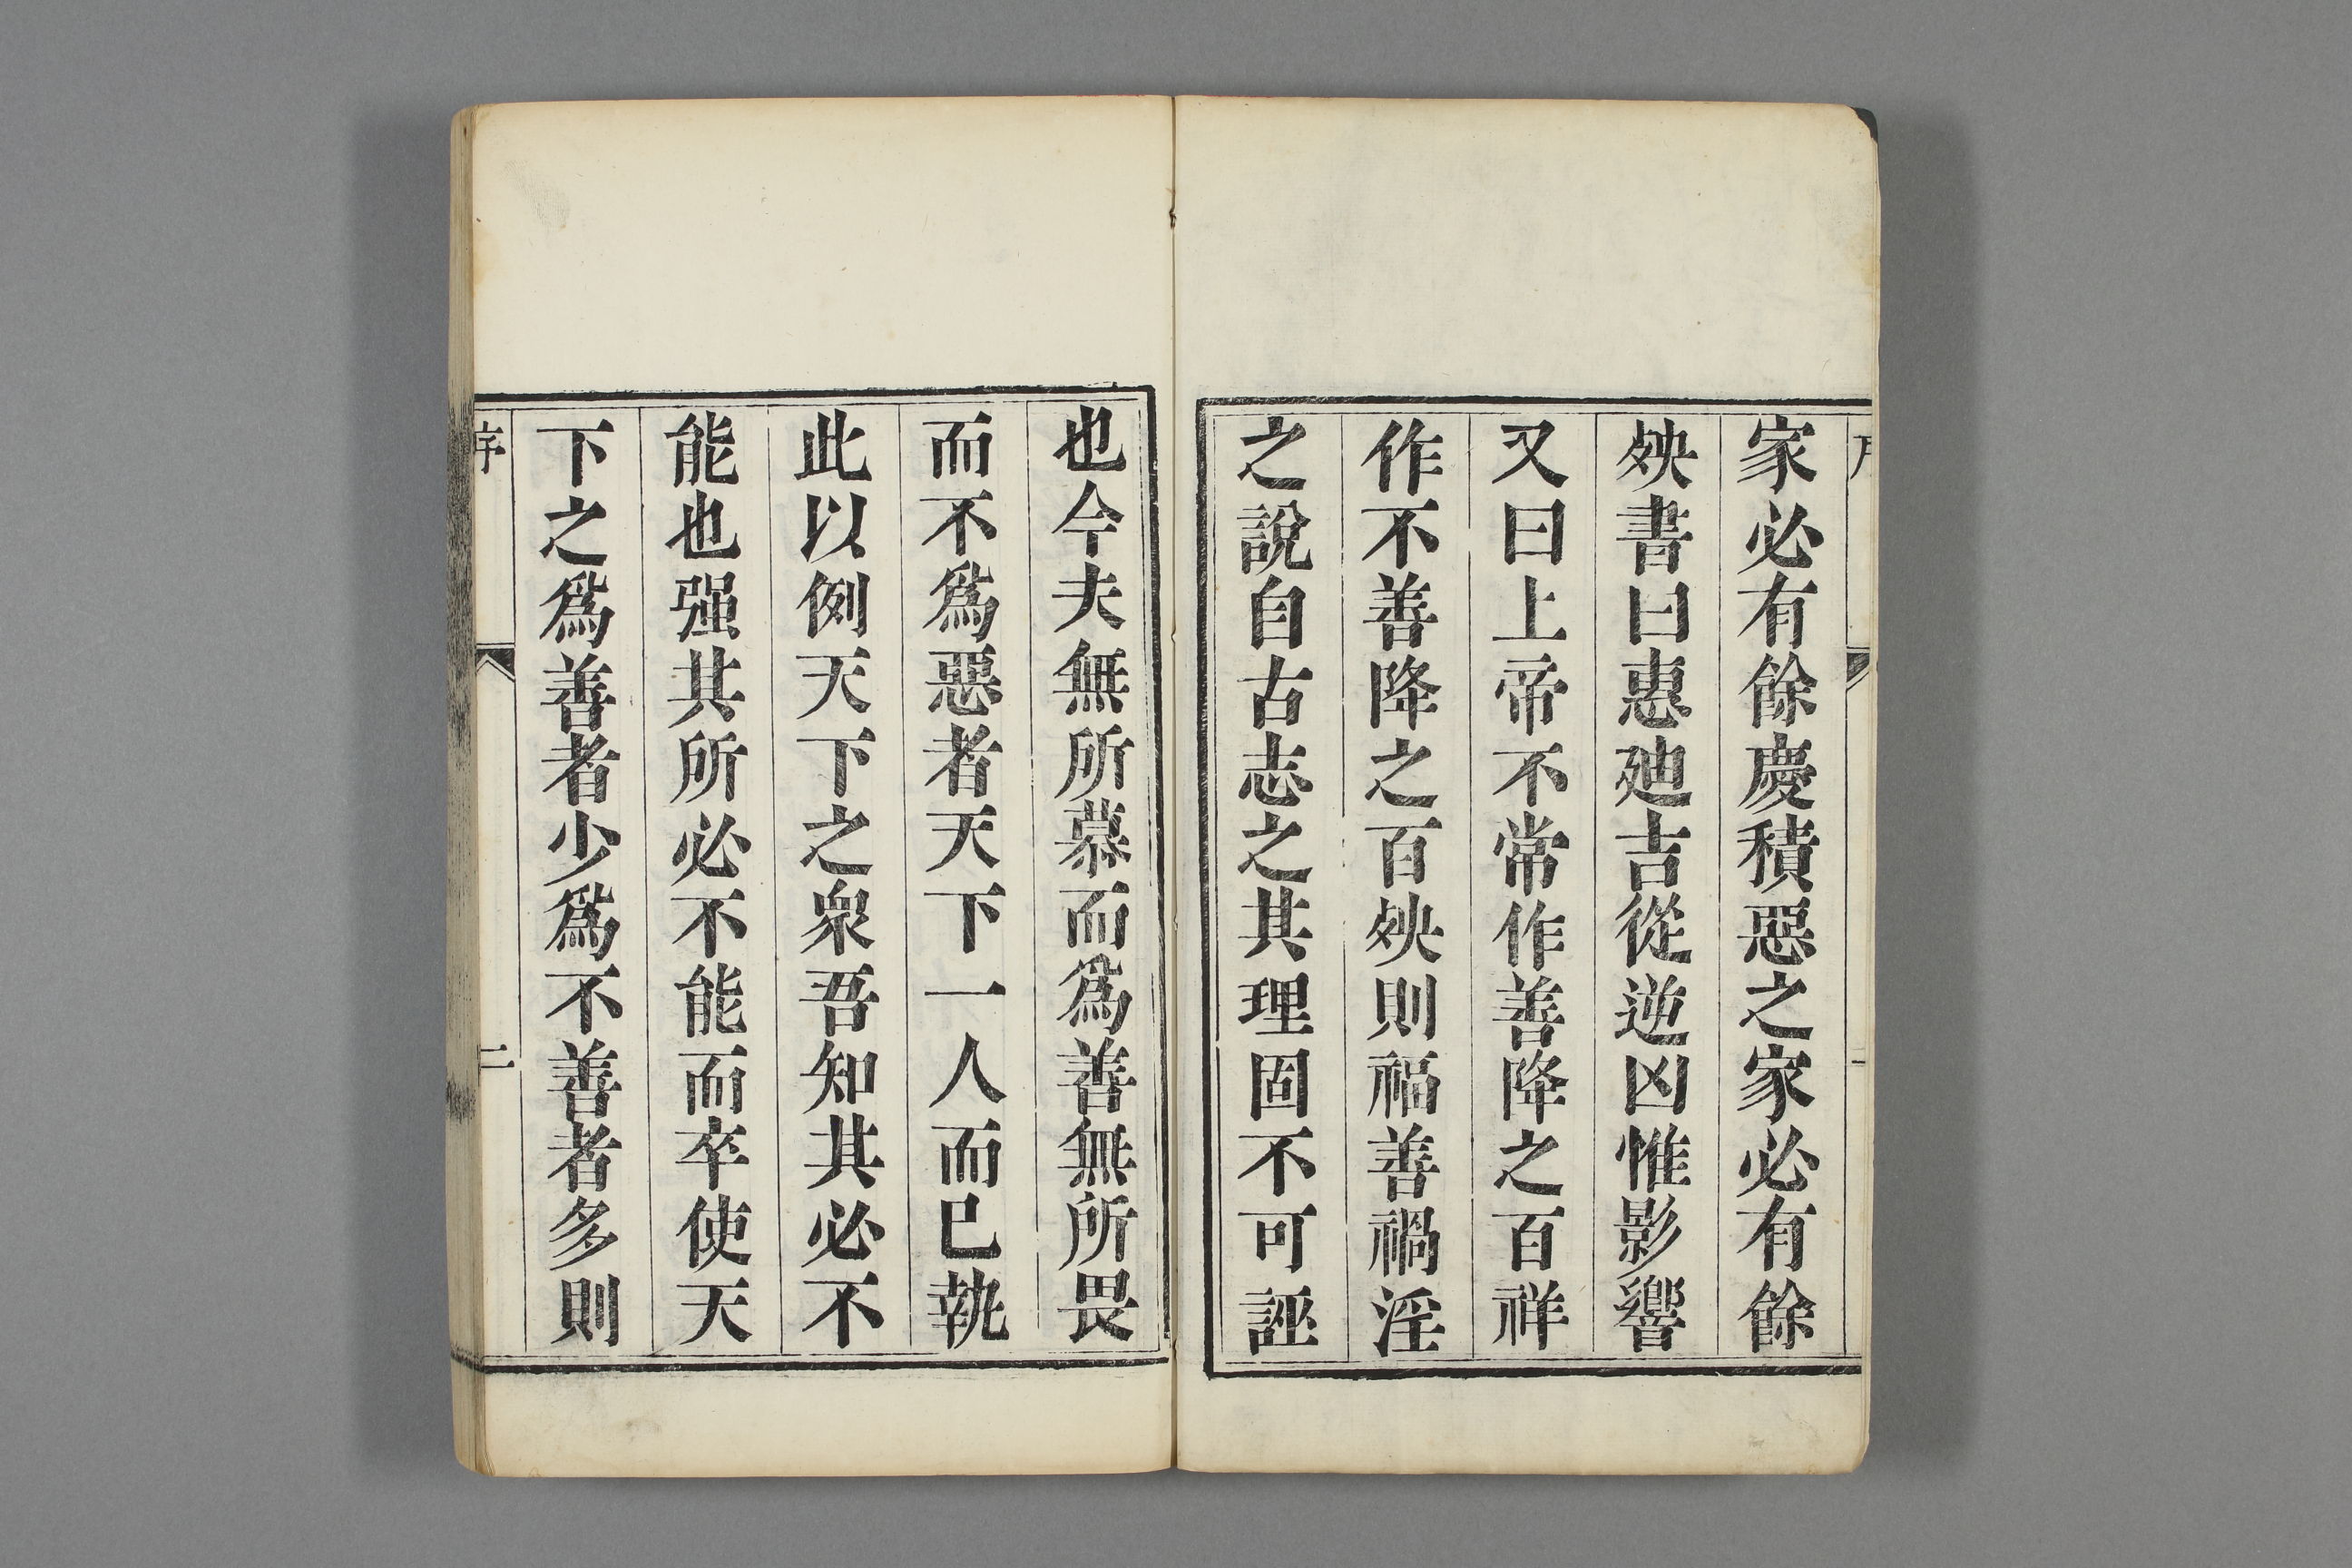 家必有餘慶積惡之家必有餘
殃書曰惠廸吉從逆凶惟影響
又曰上帝不常作善降之百祥
作不善降之百殃則福善禍淫
之說自古志之其理固不可誣
也今夫無所慕而爲善無所畏
而不爲惡者天下一人而已執
此以例天下之衆吾知其必不
能也强其所必不能而卒使天
下之爲善者少爲不善者多則
序
二